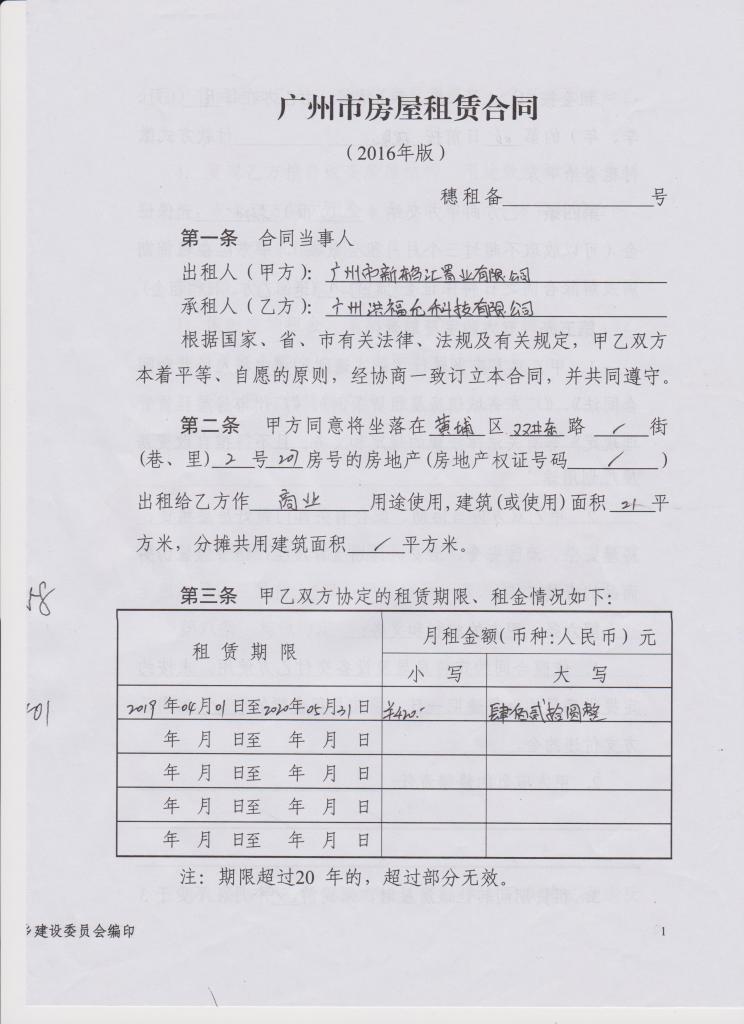 广州市房屋租赁合同
（2016年版）
穗租备 号
第一条 合同当事人
出租人（甲方）：广州市新鹤江置业有限公司
承租人（乙方）：广州洪福允科技有限公司
根据国家、省、市有关法律、法规及有关规定，甲乙双方
本着平等、自愿的原则，经协商一致订立本合同，并共同遵守。
第二条 甲方同意将坐落在 黄埔 区 双井东 路 / 街
(巷、里) 2 号 207 房号的房地产(房地产权证号码 / )
出租给乙方作 商业 用途使用，建筑(或使用)面积 21 平
方米，分摊共用建筑面积 / 平方米。
58
第三条 甲乙双方协定的租赁期限、租金情况如下：
租赁期限 月租金额(币种:人民币)元
小写 大写
01
2019年04月01日至2020年05月31日 ¥420.- 肆佰贰拾圆整
年 月 日至 年 月 日
年 月 日至 年 月 日
年 月 日至 年 月 日
年 月 日至 年 月 日
注：期限超过20 年的，超过部分无效。
乡建设委员会编印 1